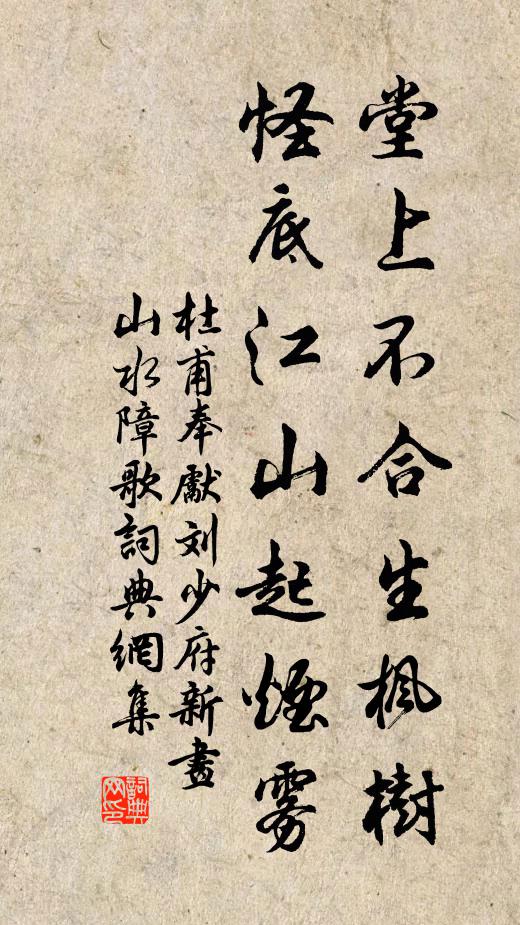 堂上不合生楓樹
怪底江山起煙雾
杜甫奉獻刘少府新畫
山水障歌詞典網集
詞典网印